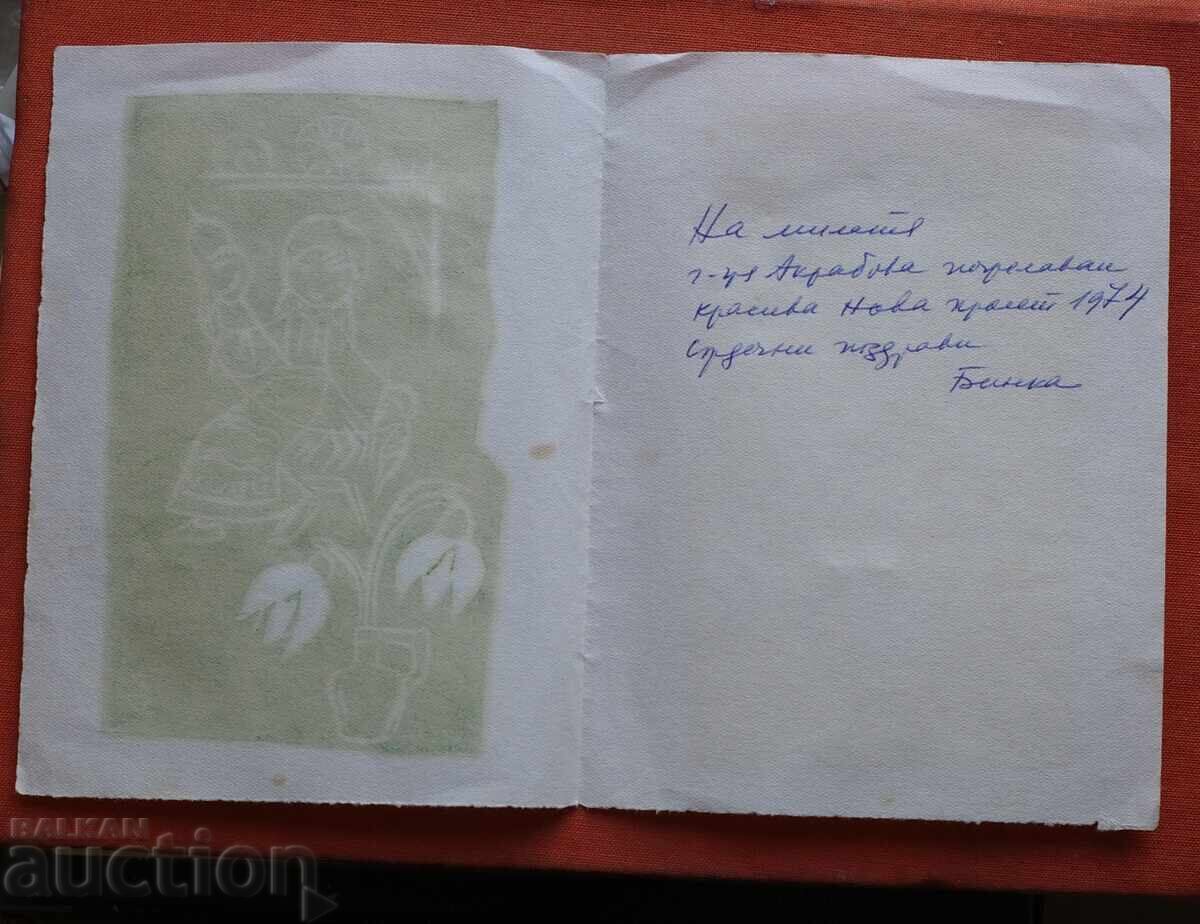 На милата
г-ця Акрабова пожелавам
красива Нова пролет 1974
Сърдечни поздрави
Бинка
BALKAN
auction